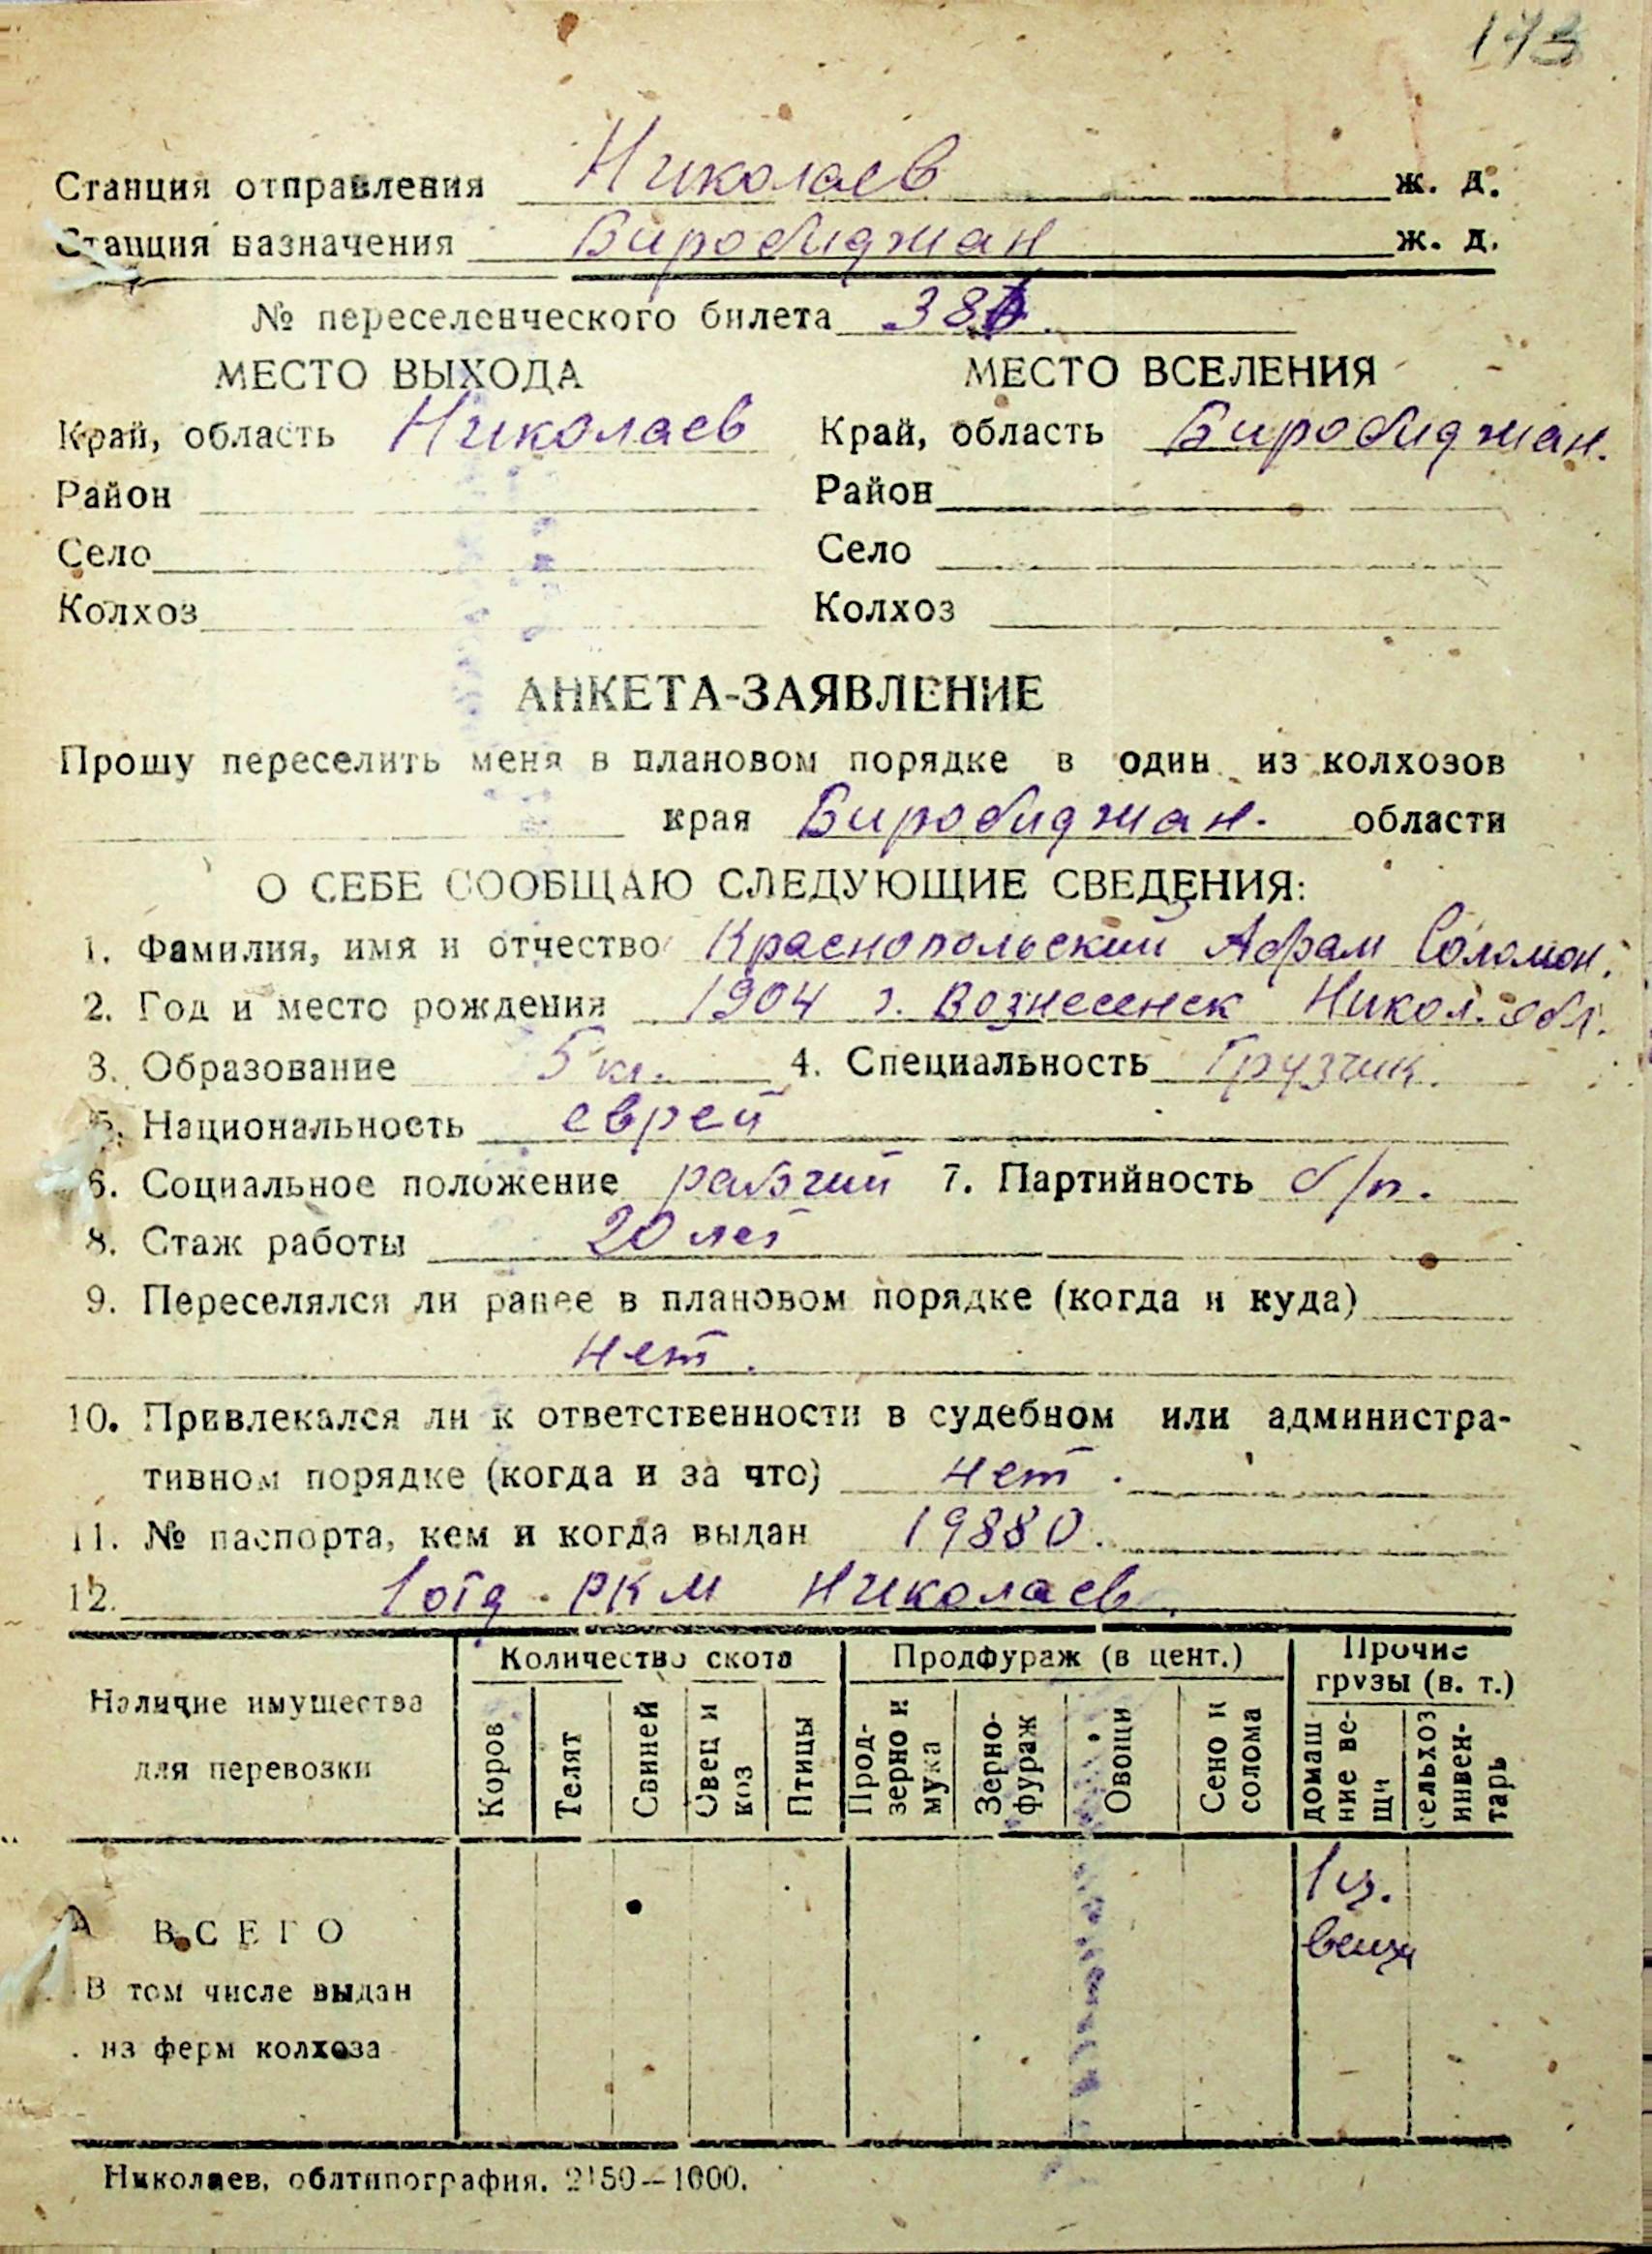 173
Станция отправления Николаев ж. д.
Станция назначения Биробиджан ж. д.
№ переселенческого билета
МЕСТО ВЫХОДА МЕСТО ВСЕЛЕНИЯ
Край, область Николаев Край, область Биробиджан.
Район Район
Село Село
Колхоз Колхоз
АНКЕТА-ЗАЯВЛЕНИЕ
Прошу переселить меня в плановом порядке в один из колхозов
края Биробиджан. области
О СЕБЕ СООБЩАЮ СЛЕДУЮЩИЕ СВЕДЕНИЯ:
1. Фамилия, имя и отчество Краснопольский Абрам Соломон.
2. Год и место рождения 1904 г. Вознесенск Никол. обл.
3. Образование 5 кл. 4. Специальность Грузчик.
5. Национальность еврей
6. Социальное положение рабочий 7. Партийность б/п.
8. Стаж работы 20 лет
9. Переселялся ли ранее в плановом порядке (когда и куда)
нет.
10. Привлекался ли к ответственности в судебном или администра-
тивном порядке (когда и за что) нет.
11. № паспорта, кем и когда выдан 19880.
12. 1 отд. РКМ Николаев.
Наличие имущества для перевозки
Количество скота Продфураж (в цент.) Прочие грузы (в. т.)
Коров Телят Свиней Овец и коз Птицы Прод-зерно и мука Зерно-фураж Овощи Сено и солома домаш-ние ве-щи сельхоз инвен-тарь
1 ц.
вещи
ВСЕГО
В том числе выдан
из ферм колхоза
Николаев, облтипография. 2150—1000.